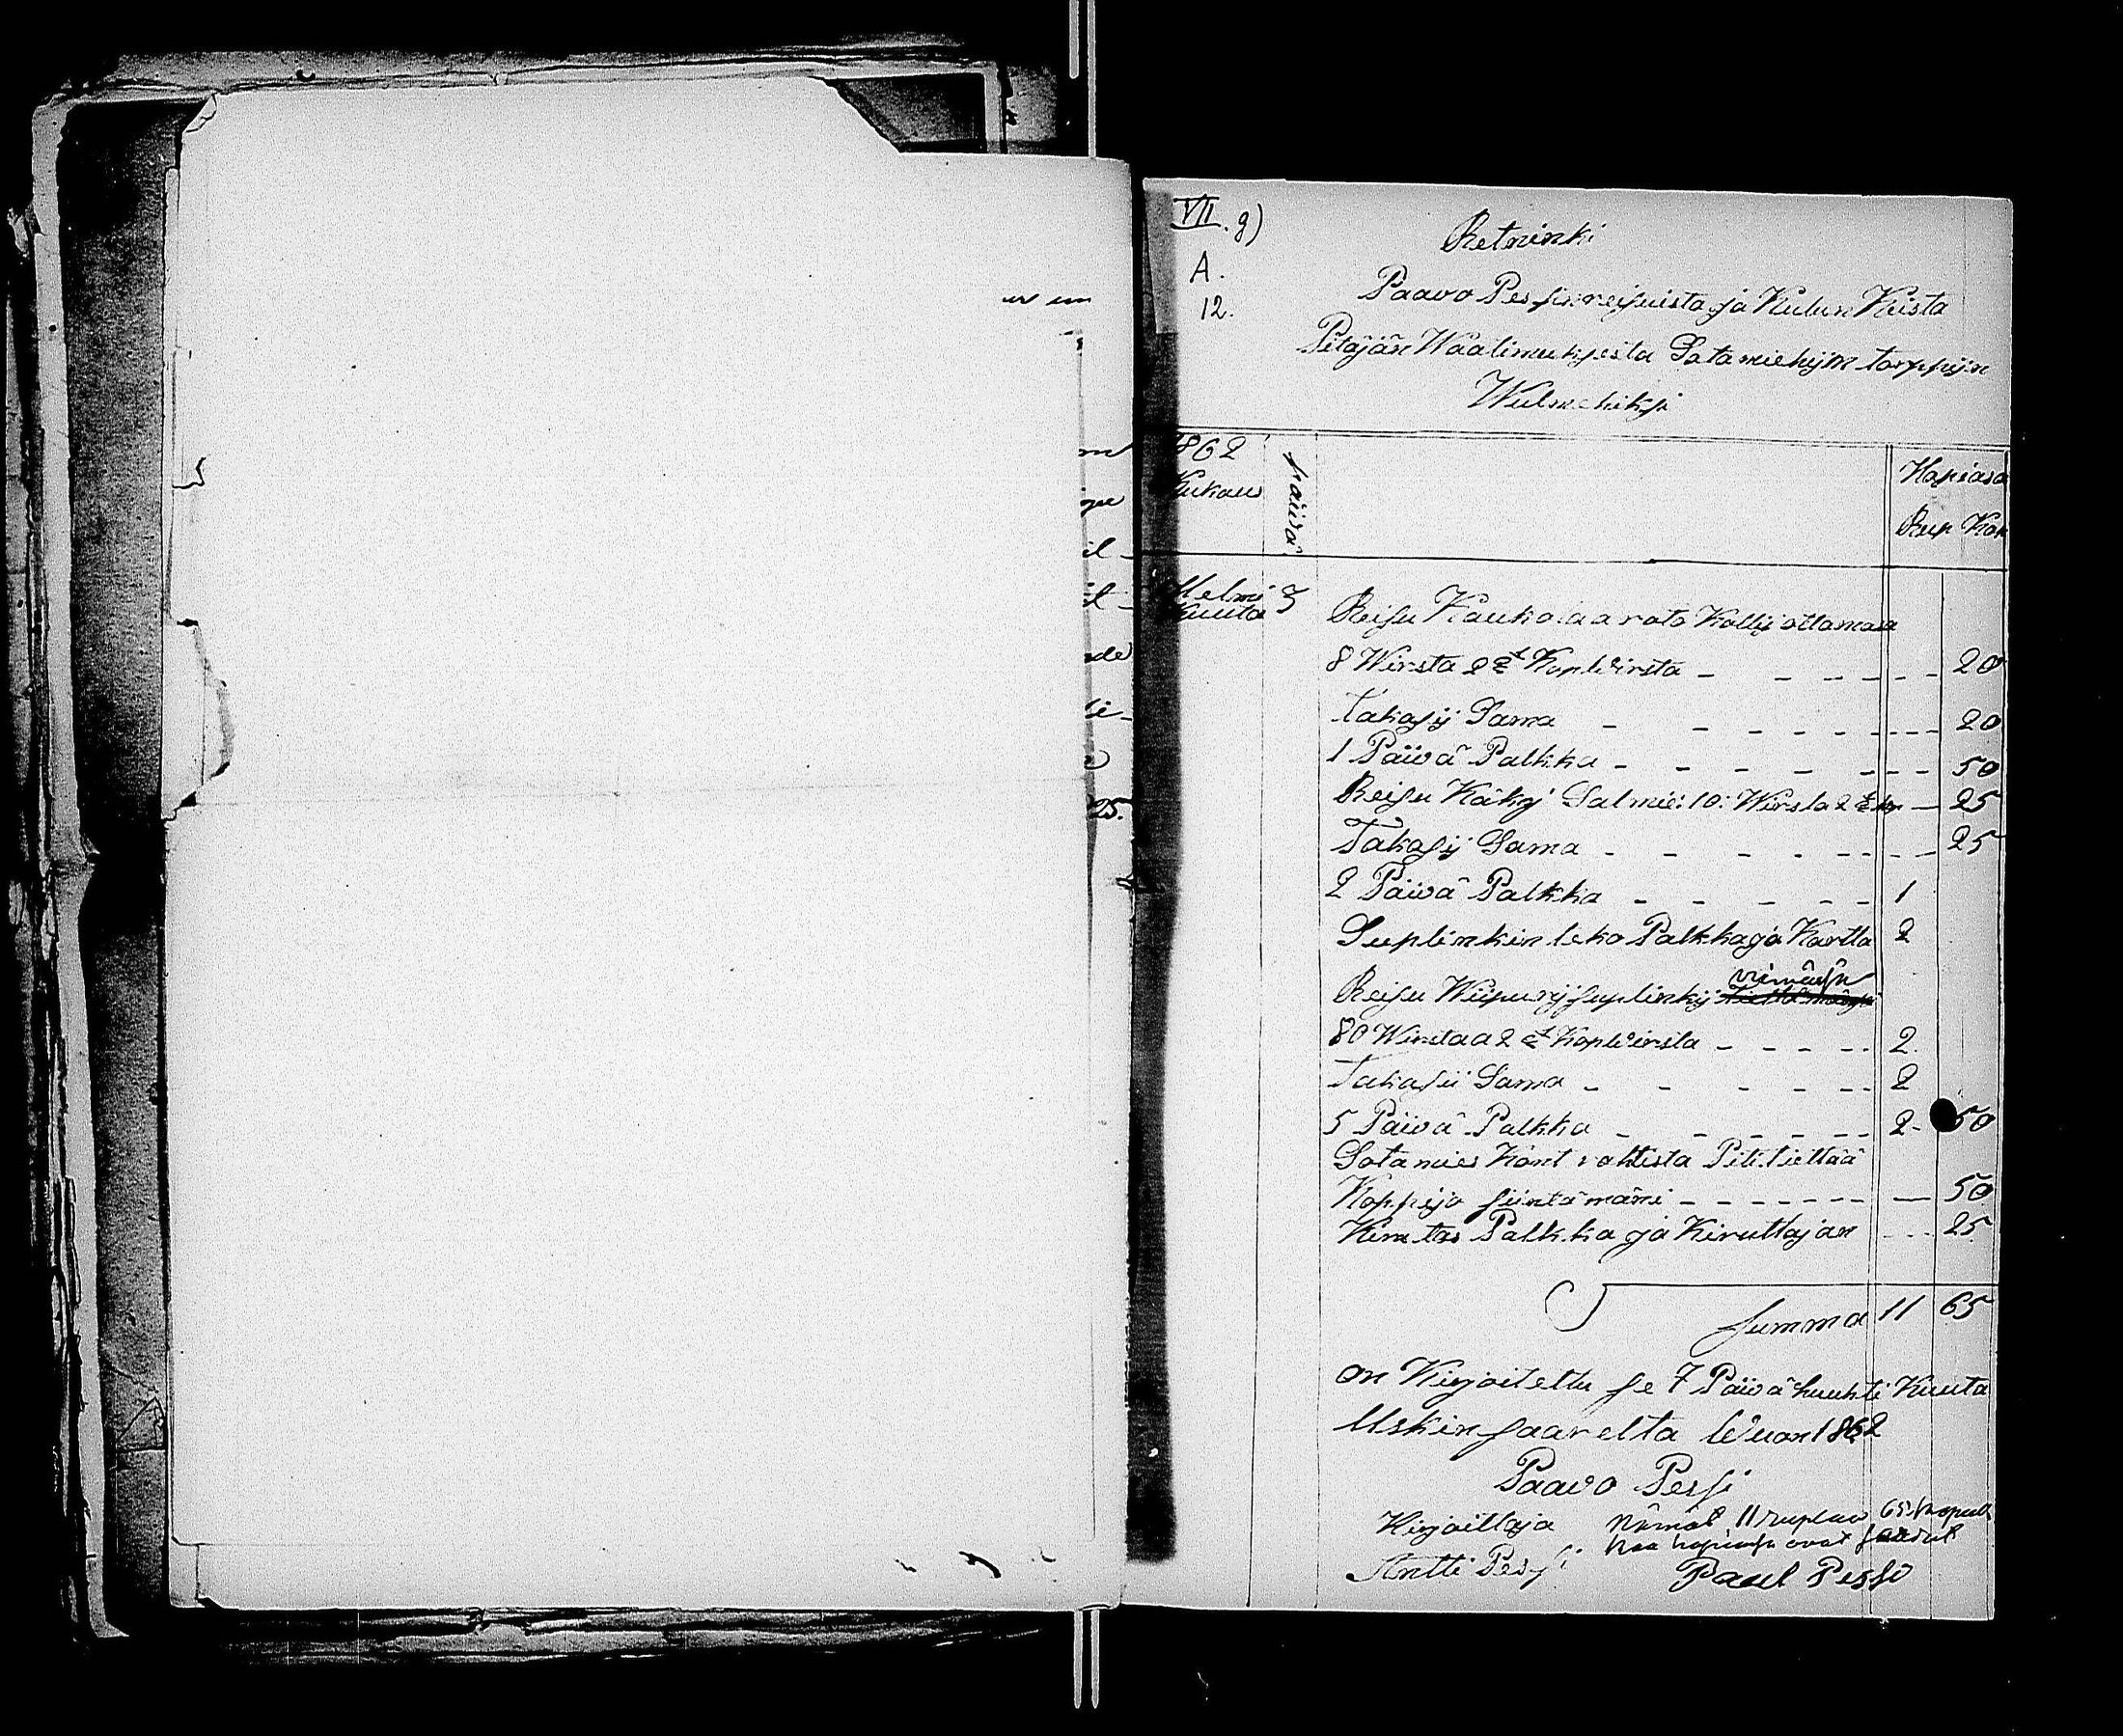 ur um
25.
VII. g)
A.
12.
Retninki
Paavo Pessin reisuista ja Kulun Kista
Pitäjän Waatimuksesta Sotamiehijn torppijn
Wulmchiksi
1862
Kukaus
päivä
Hopiasa
Rup Kop
Helmi
Kuuta
3
Reisu Kaukolaa rato Kallij ottamasa
8 Wirsta 2 ½ Kop Wirsta - - - - - - 20
Takasij Sama - - - - - - 20
1 Päivä Palkka - - - - - - 50
Reisu Käkj Salmie: 10: Wirsta 2 ½ kop - 25
Takasij Sama - - - - - - 25
2 Päivä Palkka - - - - - 1
Suplinkin teko Palkka ja Kartta 2
Reisu Wiipurij suplinkij vimäsä
80 Wirstaa 2 ½ Kop Wirsta - - - - 2.
Takasii Sama - - - - - 2
5 Päivä Palkka - - - - - - 2 - 50
Sotamies Könt vahtista Pitit iettää
Koppijo siintämäni - - - - - - - 50
Kimitos Palkka ja Kiruttajan - - - 25
Summa 11 65
on Kirjoitettu se 7 Päivä huuhti Kuuta
Uskinsaarelta Wuon 1862
Paavo Pessi
Kirjoittaja
Antti Pessi
Nämät 11 ruplaa 65 kopek
kaa hopiasa ovat saadut
Paul Pessi